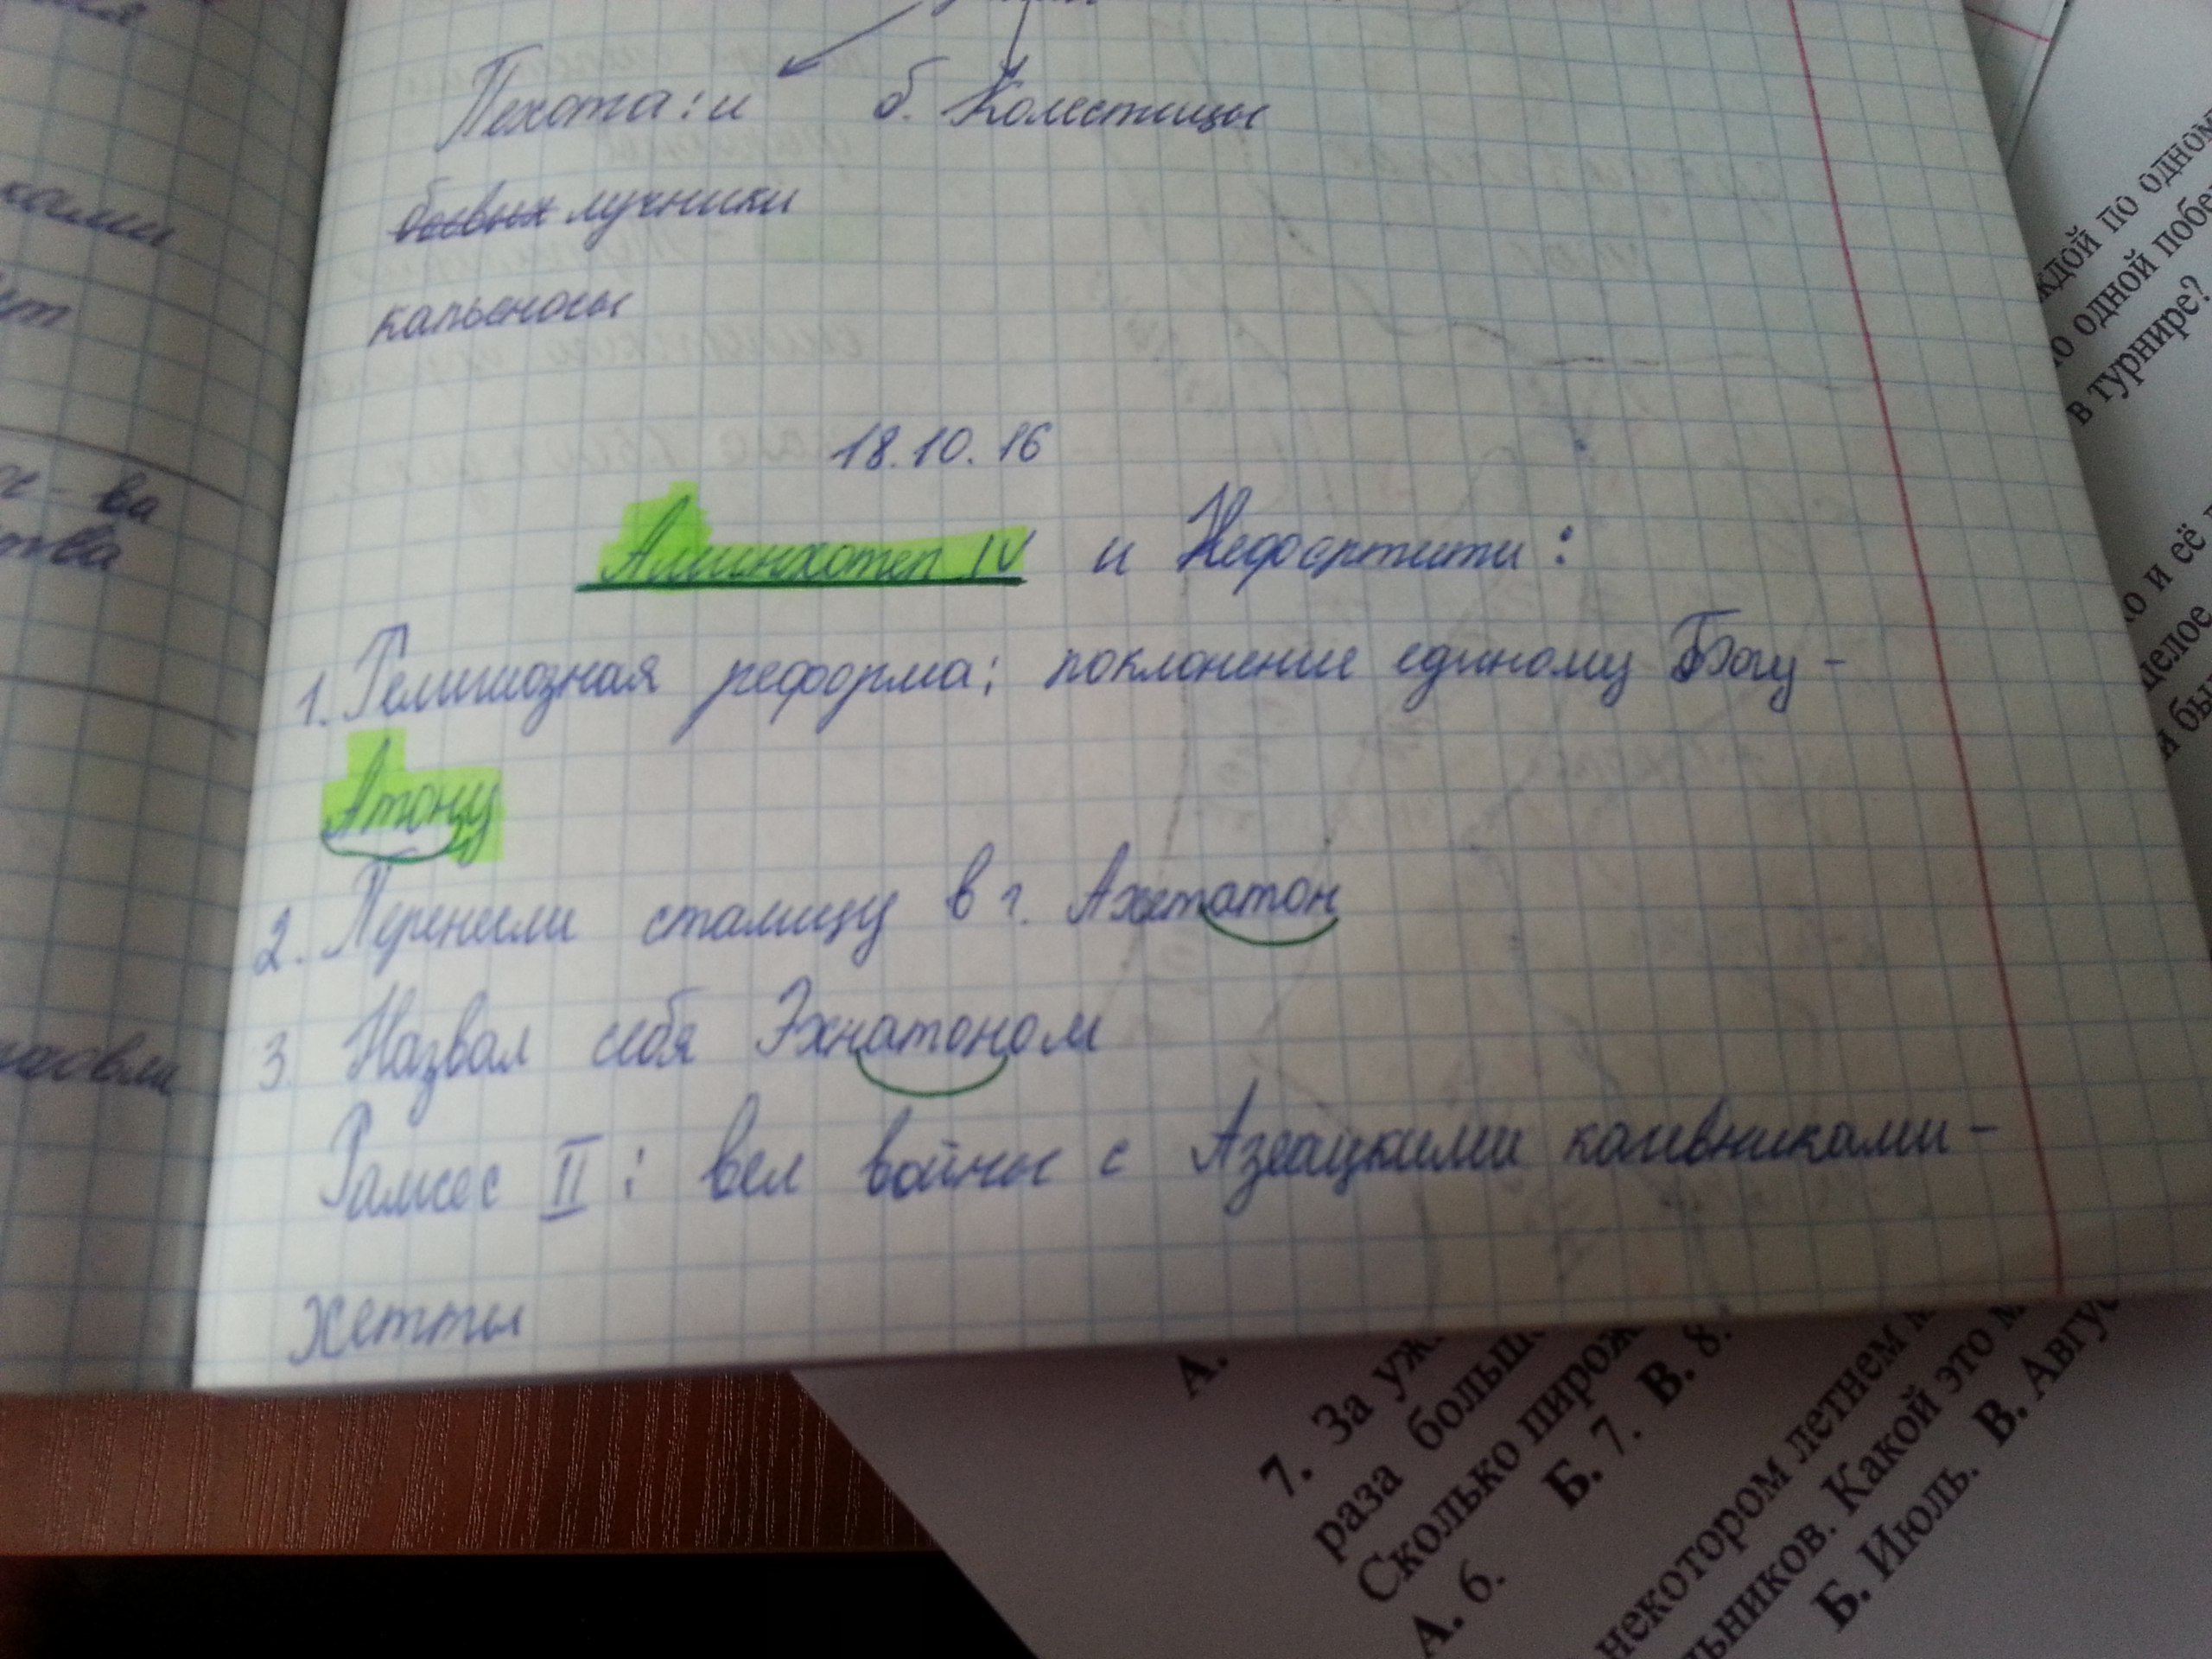 Пехота: и б. Колестницы
боевых лучники
капьеносы
18.10.16
Аминхотеп IV и Нефертити:
1. Религиозная реформа; поклонение единому Богу -
Атону
2. Перенели сталицу в г. Ахетатон
3. Назвал себя Эхнатоном
Рамсес II: вел войны с Азеацкими качевниками -
хетты
ками
ва
ства
ждой по одном
о одной побе
в турнире?
о и её
целое
и бы
А.
7. За уж
раза больш
Сколько пирож
А. 6. Б. 7. В. 8.
некотором летнем м
льников. Какой это м
Б. Июль. В. Авгус